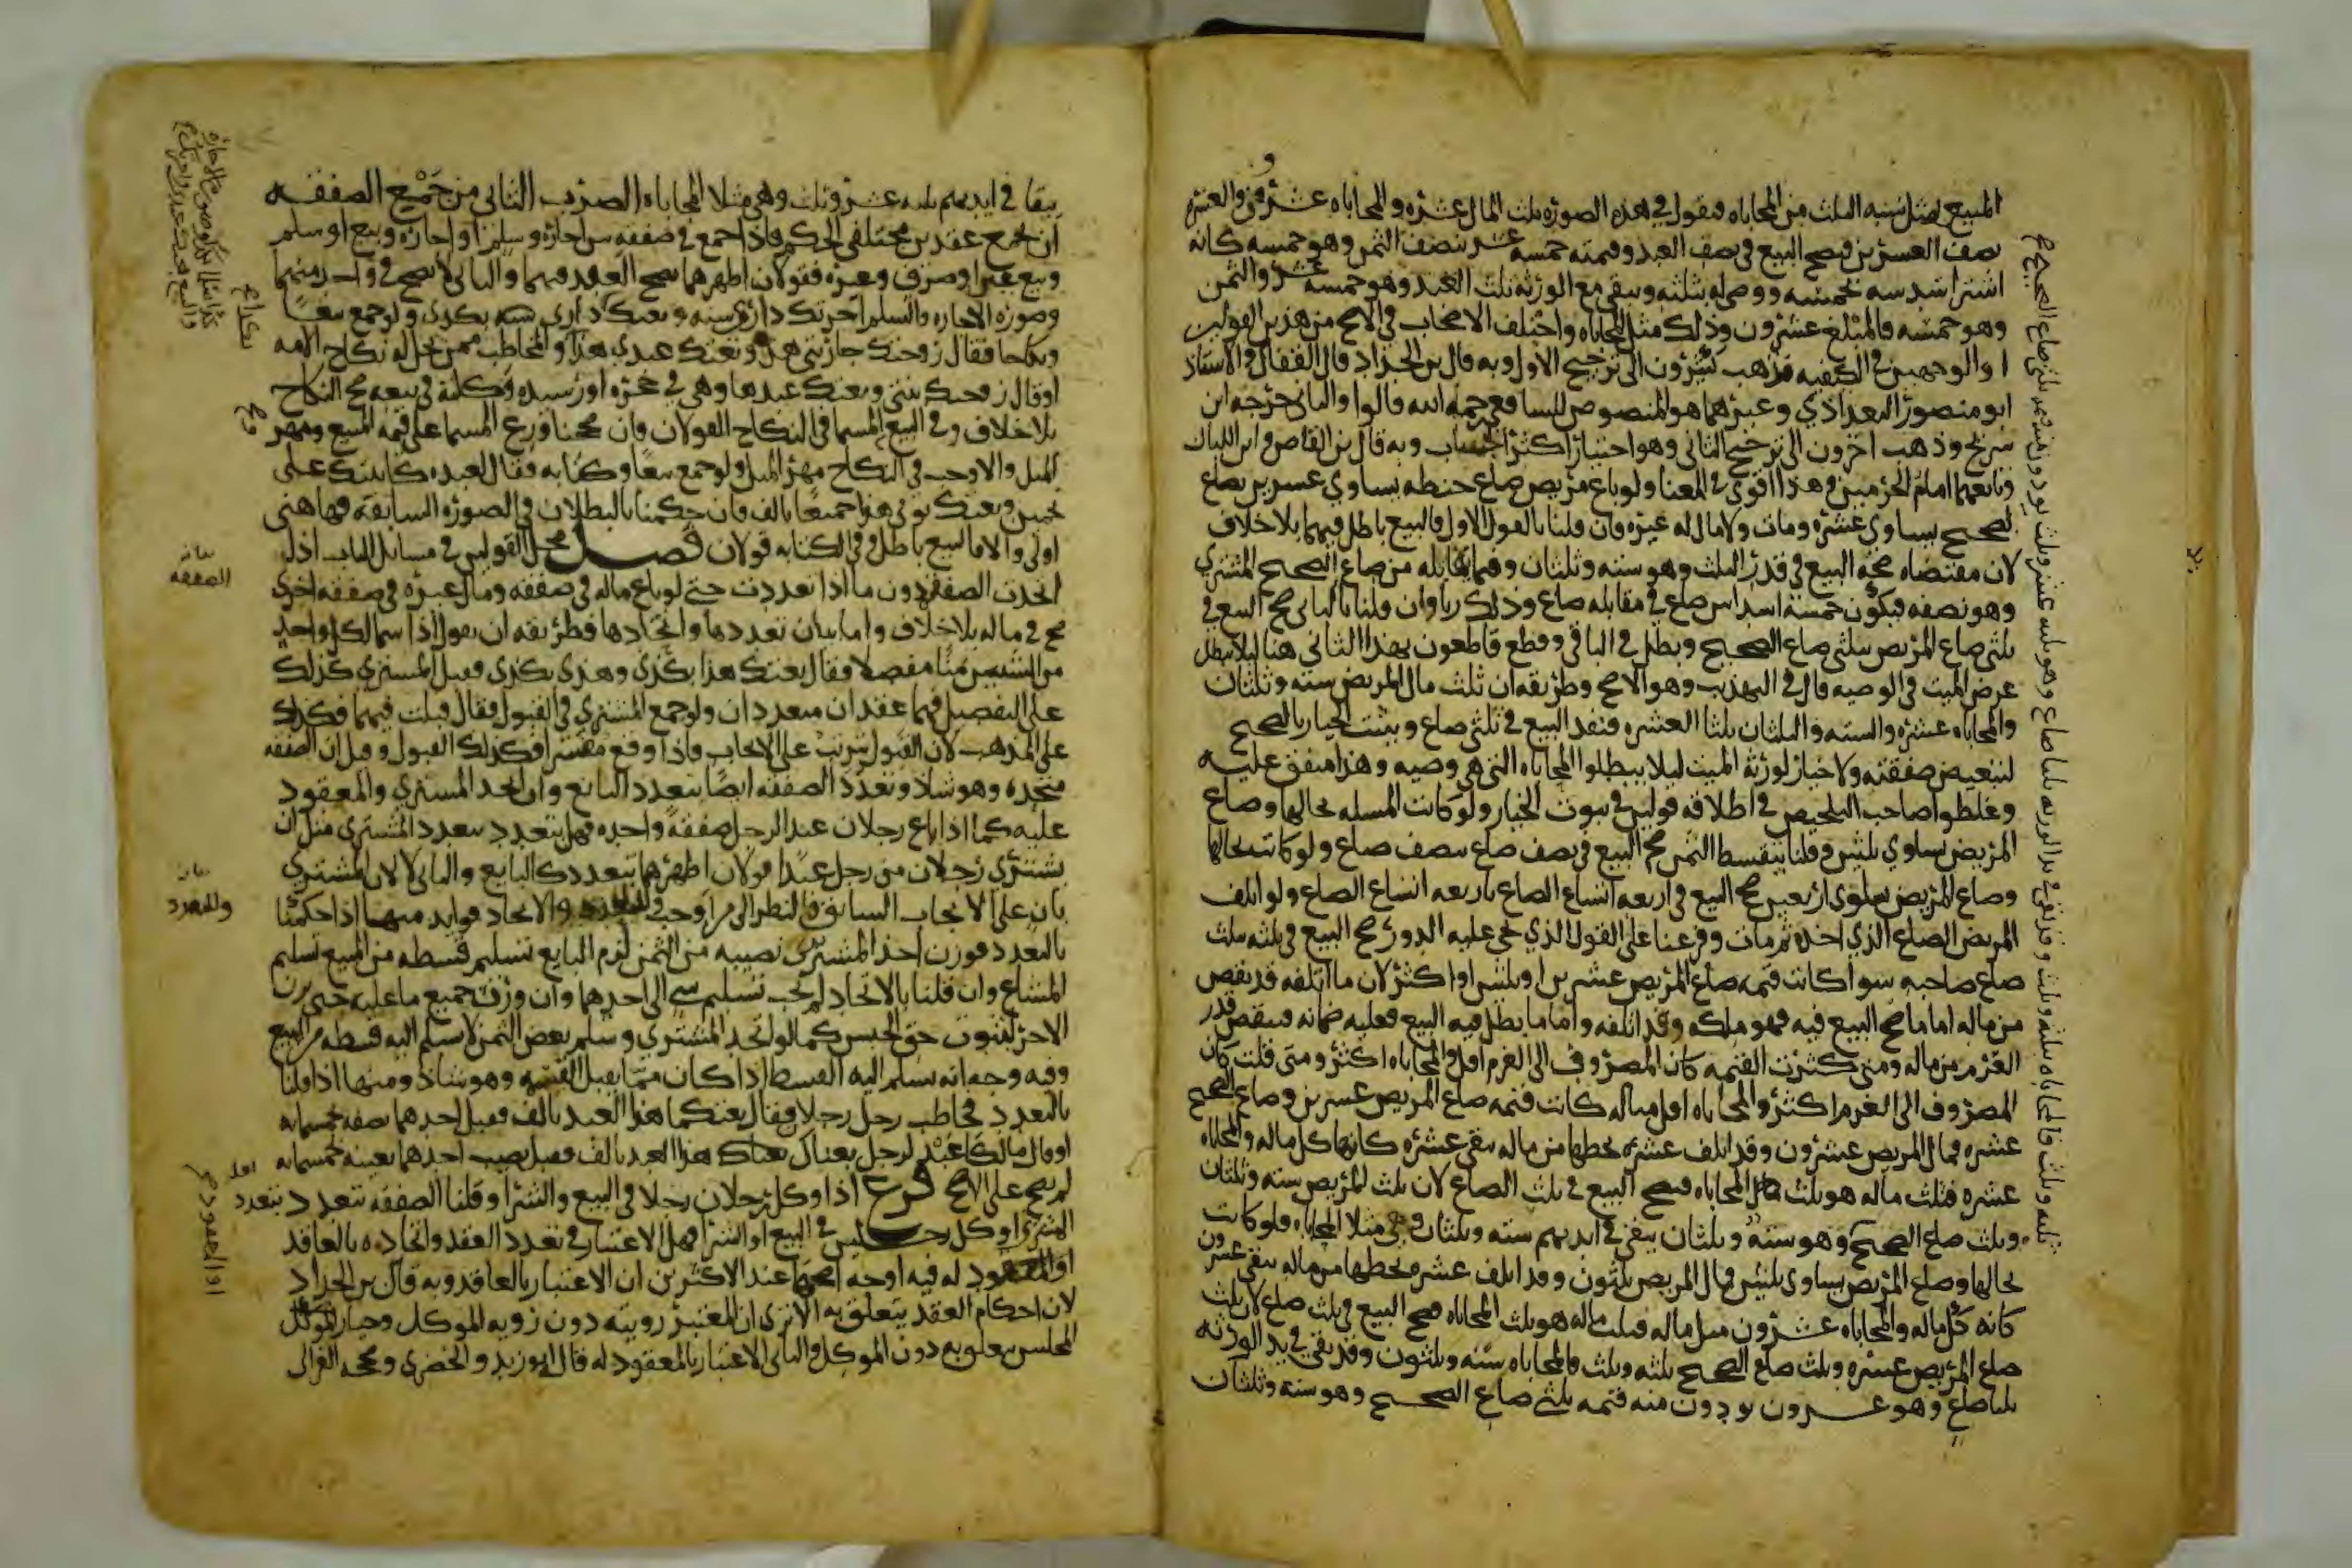 المبيع مثل نسبه الثلث من المحاباه فنقول في هذه الصوره ثلث المال عشره والمحاباه عشرون والعشره
نصف العشرين فيصح البيع في نصف العبد وقيمته خمسه عشر بنصف الثمن وهو خمسه كانه
اشترا سدسه بخمسه ووصي له بثلثه ويبقى مع الورثه نصف العبد وهو خمسه عشر والثمن
وهو خمسه فالمبلغ عشرون وذلك مثلا المحاباه واختلف الاصحاب في الاصح من هذين القولين
او الوجهين في الكيفيه فذهب كثيرون الى ترجيح الاول وبه قال بن الحداد قال القفال والاستاذ
ابو منصور البغداذي وغيرهما هو المنصوص للشافعي رحمه الله قالوا والثاني خرجه ابن
سريج وذهب اخرون الى ترجيح الثاني وهو اختيار اكثر الحساب وبه قال بن القاص وابن اللبان
وتابعهما امام الحرمين وهذا اقوى في المعنا ولو باع مريض صاع حنطه يساوي عشرين بصاع
لصحيح يساوي عشره ومات ولا مال له غيره فان قلنا بالقول الاول فالبيع باطل فيهما بلا خلاف
لان مقتضاه صحه البيع في قدر الثلث وهو سته وثلثان وفيما يقابله من صاع الصحيح المشتري
وهو نصفه فيكون خمسه اسداس صاع في مقابله صاع وذلك ربا وان قلنا بالثاني صح البيع في
ثلثي صاع المريض بثلثي صاع الصحيح وبطل في الباقي وقطع قاطعون بهذا الثاني هنا ليلا يبطل
غرض الميت في الوصيه قال في التهذيب وهو الاصح وطريقه ان ثلث مال المريض سته وثلثان
والمحاباه عشره والسته والثلثان ثلثا العشره فنفذ البيع في ثلثي صاع ويثبت الخيار بالصحيح
لتبعيض صفقته ولا خيار لورثه الميت ليلا يبطلوا المحاباه التي هي وصيه وهذا متفق عليه
وغلطوا صاحب التلخيص في اطلاقه قولين في ثبوت الخيار ولو كانت المسله بحالها وصاع
المريض يساوي ثلثين وقلنا بتقسط الثمن صح البيع في نصف صاع بنصف صاع ولو كانت بحالها
وصاع المريض يساوي اربعين صح البيع في اربعه اتساع الصاع باربعه اتساع الصاع ولو اتلف
المريض الصاع الذي اخذه ثم مات وفرعنا على القول الذي نحى عليه الدور صح البيع في ثلثه بثلث
صاع صاحبه سوا كانت قيمه صاع المريض عشرين او ثلثين او اكثر لان ما اتلفه قد نقص
من ماله اما ما صح البيع فيه فهو ملكه وقد اتلفه واما ما بطل فيه البيع فعليه ضمانه فينقص قدر
الغرم من ماله ومتى كثرت القيمه كان المصروف الى الغرم اقل والمحاباه اكثر ومتى قلت كان
المصروف الى الغرم اكثر والمحاباه اقل مثاله كانت قيمه صاع المريض عشرين وصاع الصحيح
عشره فمال المريض عشرون وقد اتلف عشره نحطها من ماله يبقى عشره كانها كل ماله والمحاباه
عشره فثلث ماله هو ثلث المحاباه فيصح البيع في ثلث الصاع لان ثلث المريض سته وثلثان
وثلث صاع الصحيح وهو سته وثلثان يبقى في ايديهم سته وثلثان وهي مثلا المحاباه ولو كانت
بحالها وصاع المريض يساوي ثلثين فمال المريض ثلثون وقد اتلف عشره نحطها من ماله يبقى عشرون
كانه كل ماله والمحاباه عشرون مثل ماله فثلث ماله هو ثلث المحاباه فصح البيع في ثلث صاع لان ثلث
صاع المريض عشره وثلث صاع الصحيح ثلثه وثلث فالمحاباه سته وثلثون وقد بقى في يد الورثه
ثلثا صاع وهو عشرون يودون منه قيمه ثلثي صاع الصحيح وهو سته وثلثان
يبقا في ايديهم ثلثه عشر وثلث وهي مثلا المحاباه الضرب الثاني من جمع الصفقه
ان يجمع عقدين مختلفي الحكم فاذا جمع في صفقه بين اجاره وسلم او اجاره وبيع او سلم
وبيع عين او صرف وغيره فقولان اظهرهما يصح العقد فيهما والثاني لا يصح في واحد منهما
وصوره الاجاره والسلم اجرتك داري سنه وبعتك كذا في ذمتي بكذى ولو جمع بيعا
ونكاحا فقال زوجتك جاريتي هذه وبعتك عبدي هذا والمخاطب ممن يحل له نكاح الامه
او قال زوجتك بنتي وبعتك عبدها وهي في حجره او رشيده وكلته في بيعه صح النكاح
بلا خلاف وفي البيع والمسما في النكاح القولان فان صححنا وزع المسما على قيمه المبيع ومهر
المثل والا وجب في النكاح مهر المثل ولو جمع بيعا وكتابه فقال لعبده كاتبتك على
نجمين وبعتك ثوبي هذا جميعا بالف فان حكمنا بالبطلان في الصوره السابقه فهاهنى
اولى والا فالبيع باطل وفي الكتابه قولان فصل محل القولين في مسائل الباب اذا
اتحدت الصفقه دون ما اذا تعددت حتى لو باع ماله في صفقه ومال غيره في صفقه اخرى
صح في ماله بلا خلاف واما بيان تعددها واتحادها فطريقه ان يقول اذا سما لكل واحد
من الشيئين ثمنا مفصلا فقال بعتك هذا بكذى وهذى بكذى وقبل المشتري كذلك
على التفصيل فهما عقدان متعددان ولو جمع المشتري في القبول فقال قبلت فيهما فكذلك
على المذهب لان القبول يترتب على الايجاب فاذا وقع مفسرا فكذلك القبول وقيل ان الصفقه
متحده وهو شاذ وتعدد الصفقه ايضا بتعدد البائع وان اتحد المشتري والمعقود
عليه كما اذا باع رجلان عبدا لرجل صفقه واحده فهل يتعدد بتعدد المشتري مثل ان
يشتري رجلان من رجل عبدا قولان اظهرهما يتعدد كالبايع والثاني لا لان المشتري
بان على الايجاب السابق والنظر الى من اوجب وللتعدد والاتحاد فوايد منها اذا حكمنا
بالتعدد فوزن احد المشتريين نصيبه من الثمن لزم البايع تسليم قسطه من المبيع تسليم
المشاع وان قلنا بالاتحاد لم يجب تسليم شي الى احدهما وان وزن جميع ما عليه حتى يزن
الاخر لثبوت حق الحبس كما لو اتحد المشتري وسلم بعض الثمن لا يسلم اليه قسطه من المبيع
وفيه وجه انه يسلم اليه القسط اذا كان مما يقبل القسمه وهو شاذ ومنها اذا قلنا
بالتعدد فخاطب رجل رجلين فقال بعتكما هذا العبد بالف فقبل احدهما نصفه بخمسمايه
او قال مالكا عبد لرجل بعناك هذا العبد بالف فقبل نصيب احدهما بعينه بخمسمايه
لم يصح على الاصح فرع اذا وكل رجلان رجلا في البيع والشرا وقلنا الصفقه تتعدد بتعدد
المشتري او وكل رجل رجلين في البيع او الشرا فهل الاعتبار في تعدد العقد واتحاده بالعاقد
او المعقود له فيه اوجه اصحها عند الاكثرين ان الاعتبار بالعاقد وبه قال بن الحداد
لان احكام العقد يتعلق به الا ترى ان المعتبر رويته دون رويه الموكل وخيار
المجلس يتعلق به دون الموكل والثاني الاعتبار بالمعقود له قال ابو زيد والخضري وصححه الغزالي
بيان
الصفقه
بيان
والتعدد